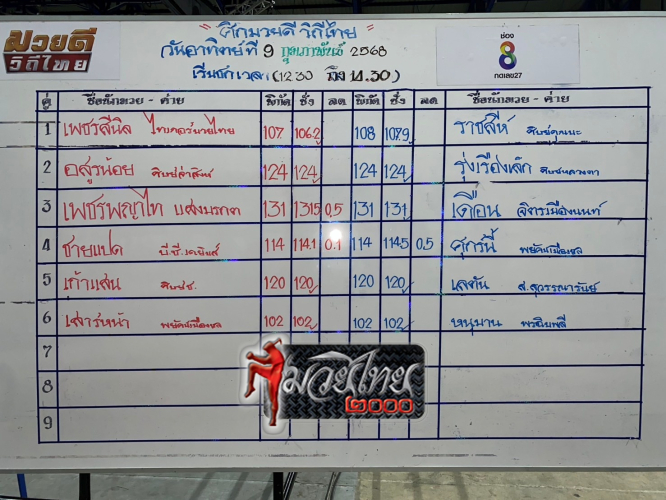 มวยดี
วิถีไทย
" ศึกมวยดี วิถีไทย "
วันอาทิตย์ที่ 9 กุมภาพันธ์ 2568
เริ่มชกเวลา (12.30 ถึง 14.30)
ช่อง
8
กดเลข27
คู่ ชื่อนักมวย - ค่าย พิกัด ชั่ง ลด พิกัด ชั่ง ลด ชื่อนักมวย - ค่าย
1 เพชรสีนิล 107 106.2 108 107.9 ราชสีห์ ศิษย์คุณนะ
2 อสูรน้อย 124 124 124 124 รุ่งเรืองเล็ก ศิษย์หลวงตา
3 เพชรพญาไท แสงมรกต 131 131.5 0.5 131 131 เดือน จิตรเมืองนนท์
4 ชายแปด 114 114.1 0.1 114 114.5 0.5 ศุกร์นี้ พยัคฆ์เมืองชล
5 เก้าแสน 120 120 120 120 เลตัน ส.สุวรรณารันย์
6 เสาร์หน้า พยัคฆ์เมืองชล 102 102 102 102 หนุมาน พรณิมพลี
7
8
9
มวยไทย
๒๐๐๐